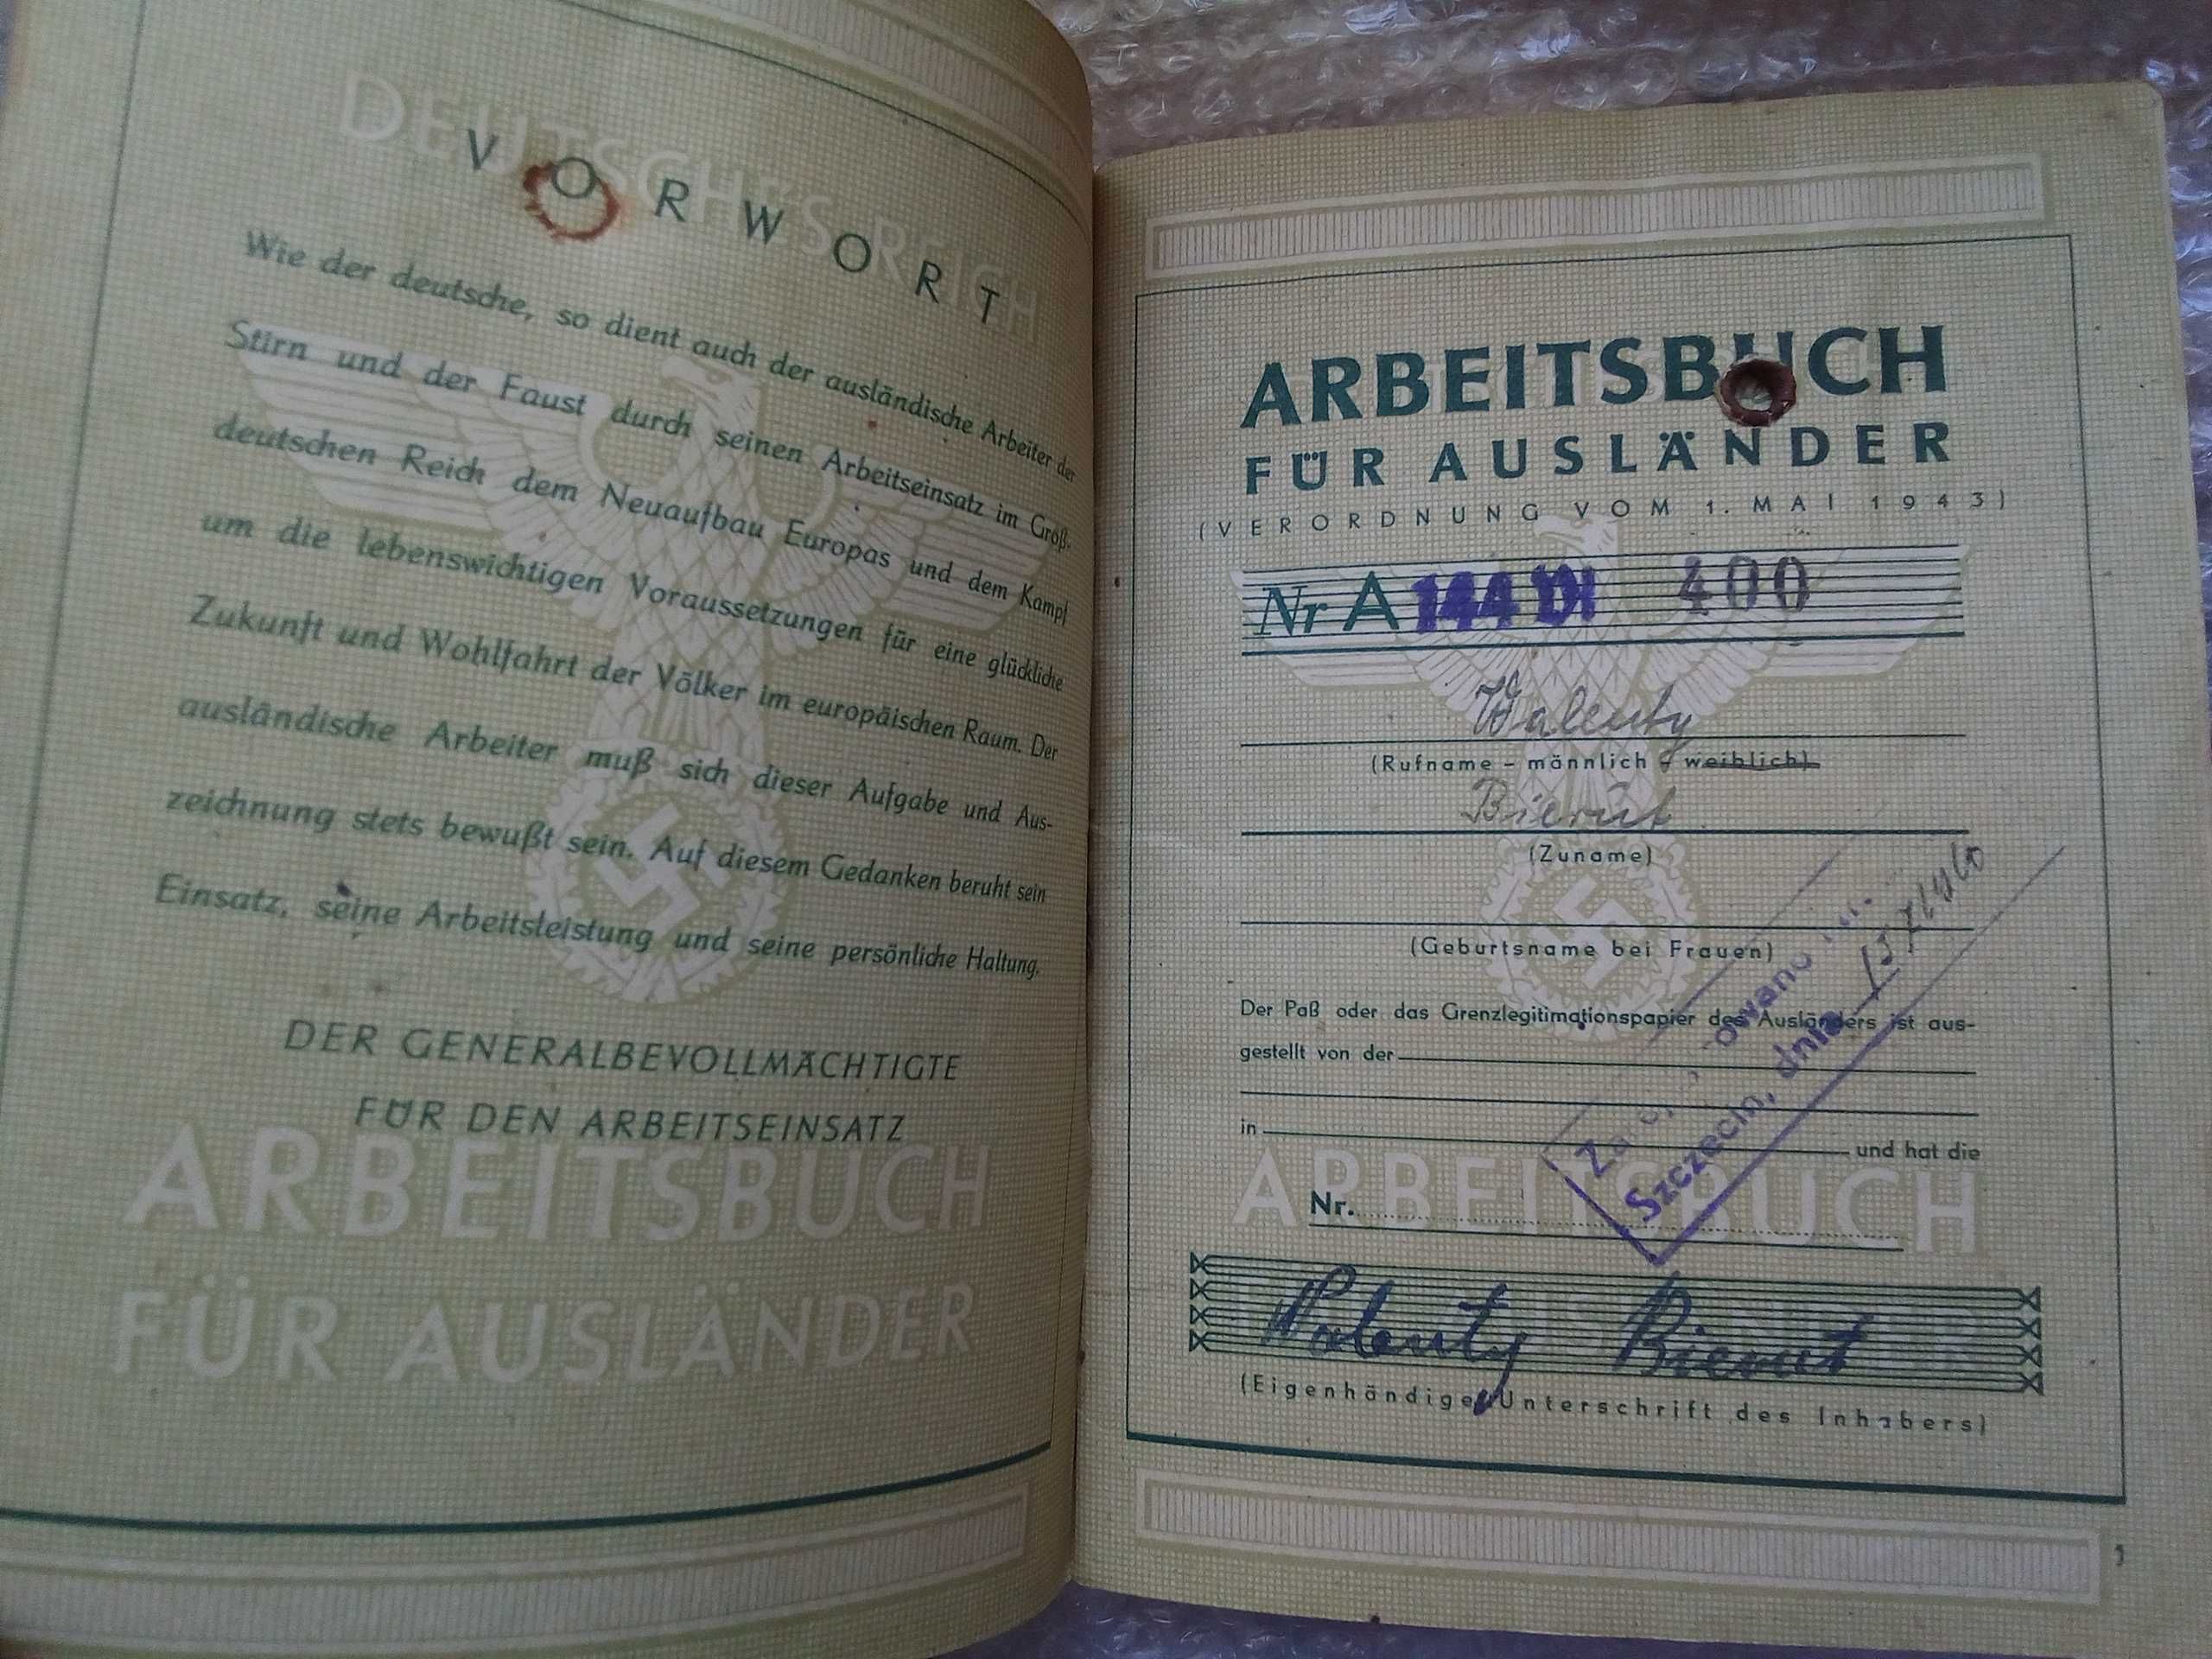 VORWORT
Wie der deutsche, so dient auch der ausländische Arbeiter der
Stirn und der Faust durch seinen Arbeitseinsatz im Groß-
deutschen Reich dem Neuaufbau Europas und dem Kampf
um die lebenswichtigen Voraussetzungen für eine glückliche
Zukunft und Wohlfahrt der Völker im europäischen Raum. Der
ausländische Arbeiter muß sich dieser Aufgabe und Aus-
zeichnung stets bewußt sein. Auf diesem Gedanken beruht sein
Einsatz, seine Arbeitsleistung und seine persönliche Haltung.
DER GENERALBEVOLLMÄCHTIGTE
FÜR DEN ARBEITSEINSATZ
DEUTSCHES REICH
ARBEITSBUCH
FÜR AUSLÄNDER
ARBEITSBUCH
FÜR AUSLÄNDER
(VERORDNUNG VOM 1. MAI 1943)
Nr A 144 400
Walenty
(Rufname – männlich – weiblich)
Bierut
(Zuname)
(Geburtsname bei Frauen)
Der Paß oder das Grenzlegitimationspapier des Ausländers ist aus-
gestellt von der
in und hat die
Nr.
ARBEITSBUCH
Szczecin, dnia
Walenty Bierut
(Eigenhändige Unterschrift des Inhabers)
1